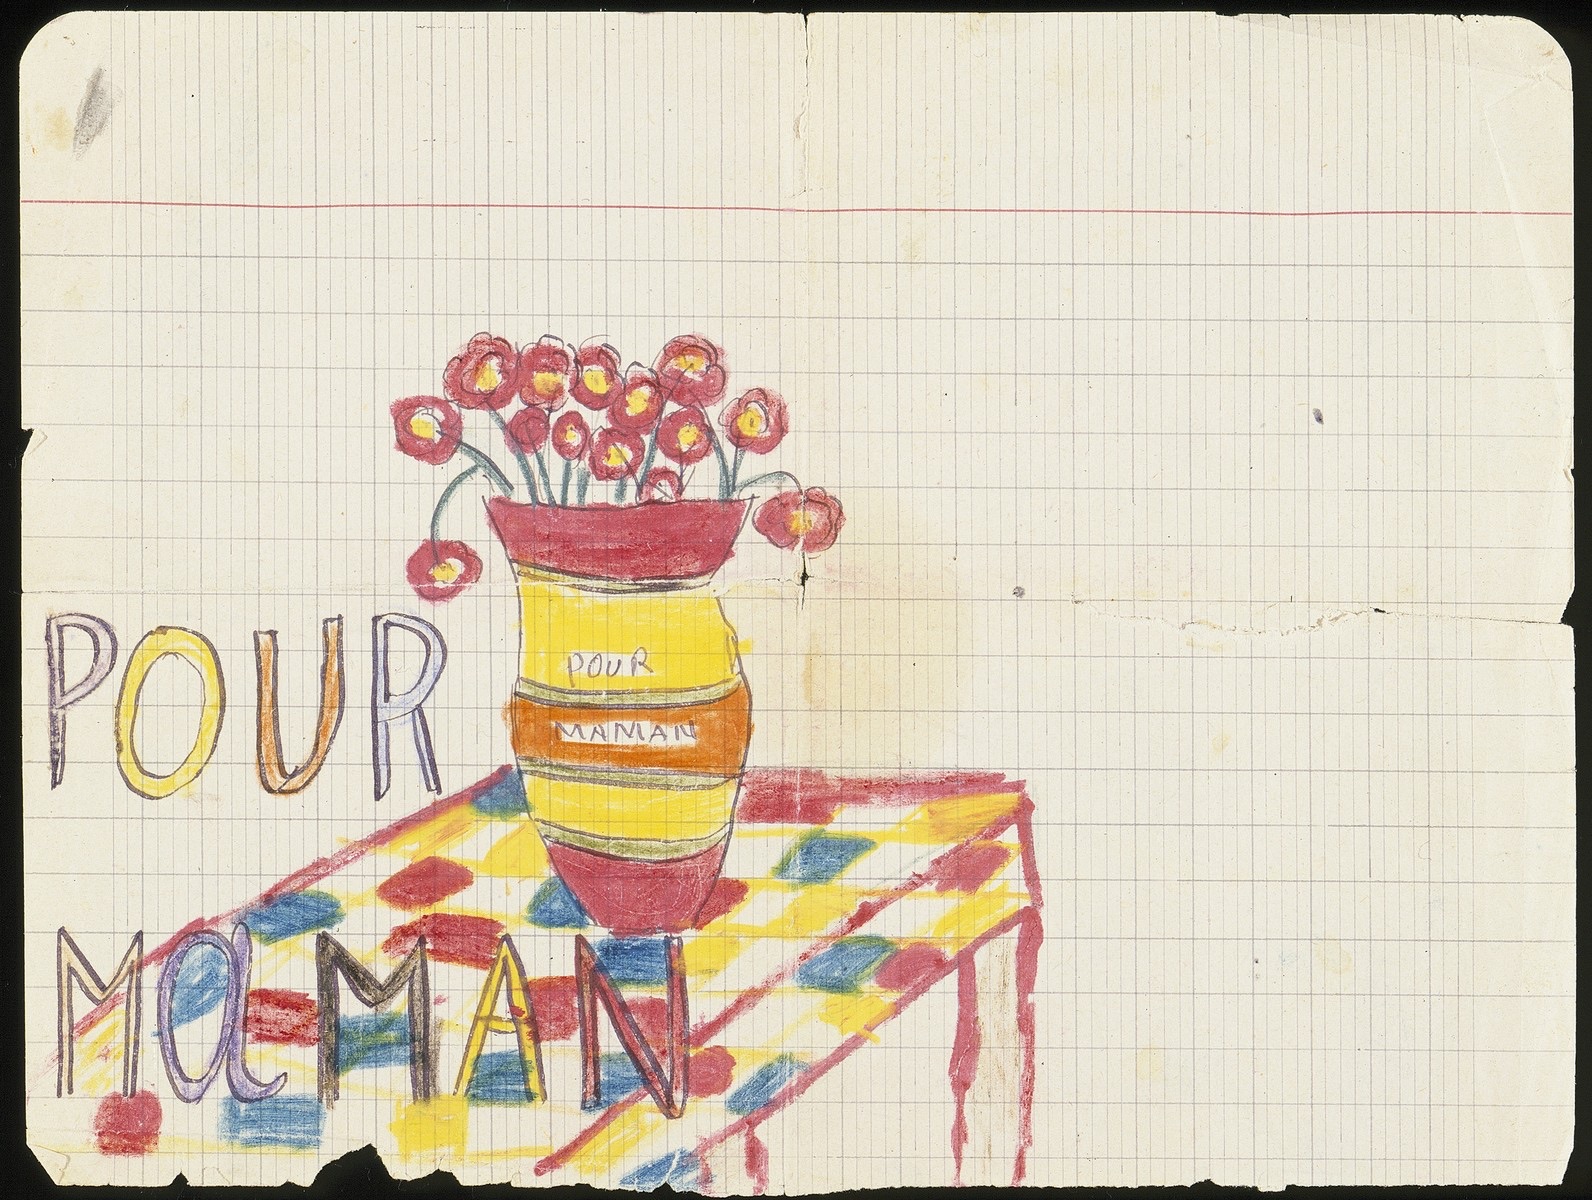 POUR
MAMAN
POUR
MaMAN